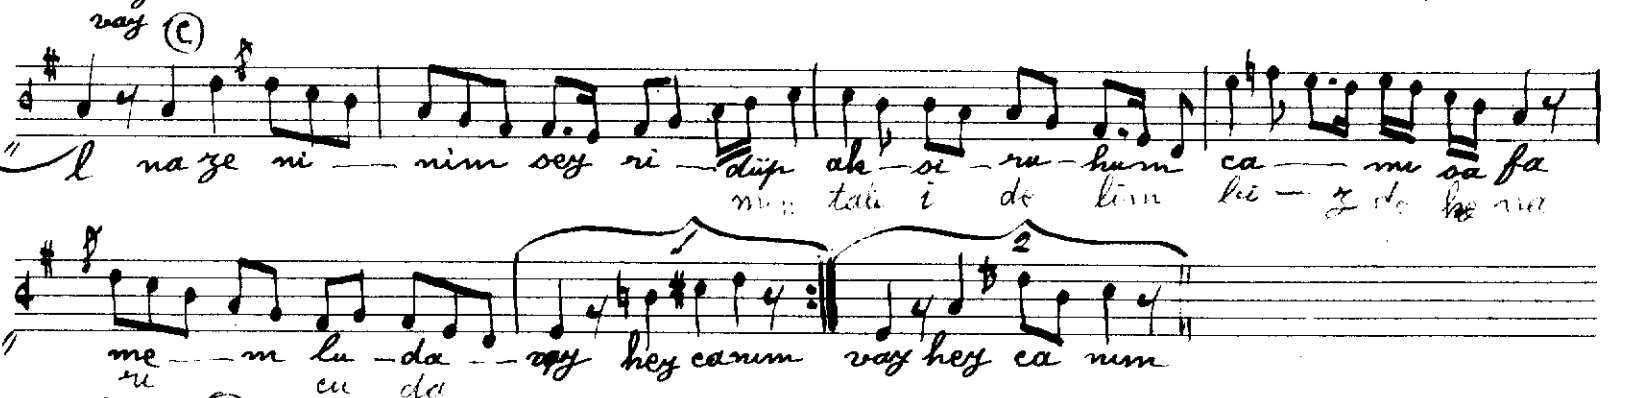 vay C
l na ze ni — nim sey ri — düp ak — si — ru — hum ca — mı sa fa
tali i de lim
me — m lu — da — vay hey canım vay hey ca nım
ri cu da
2